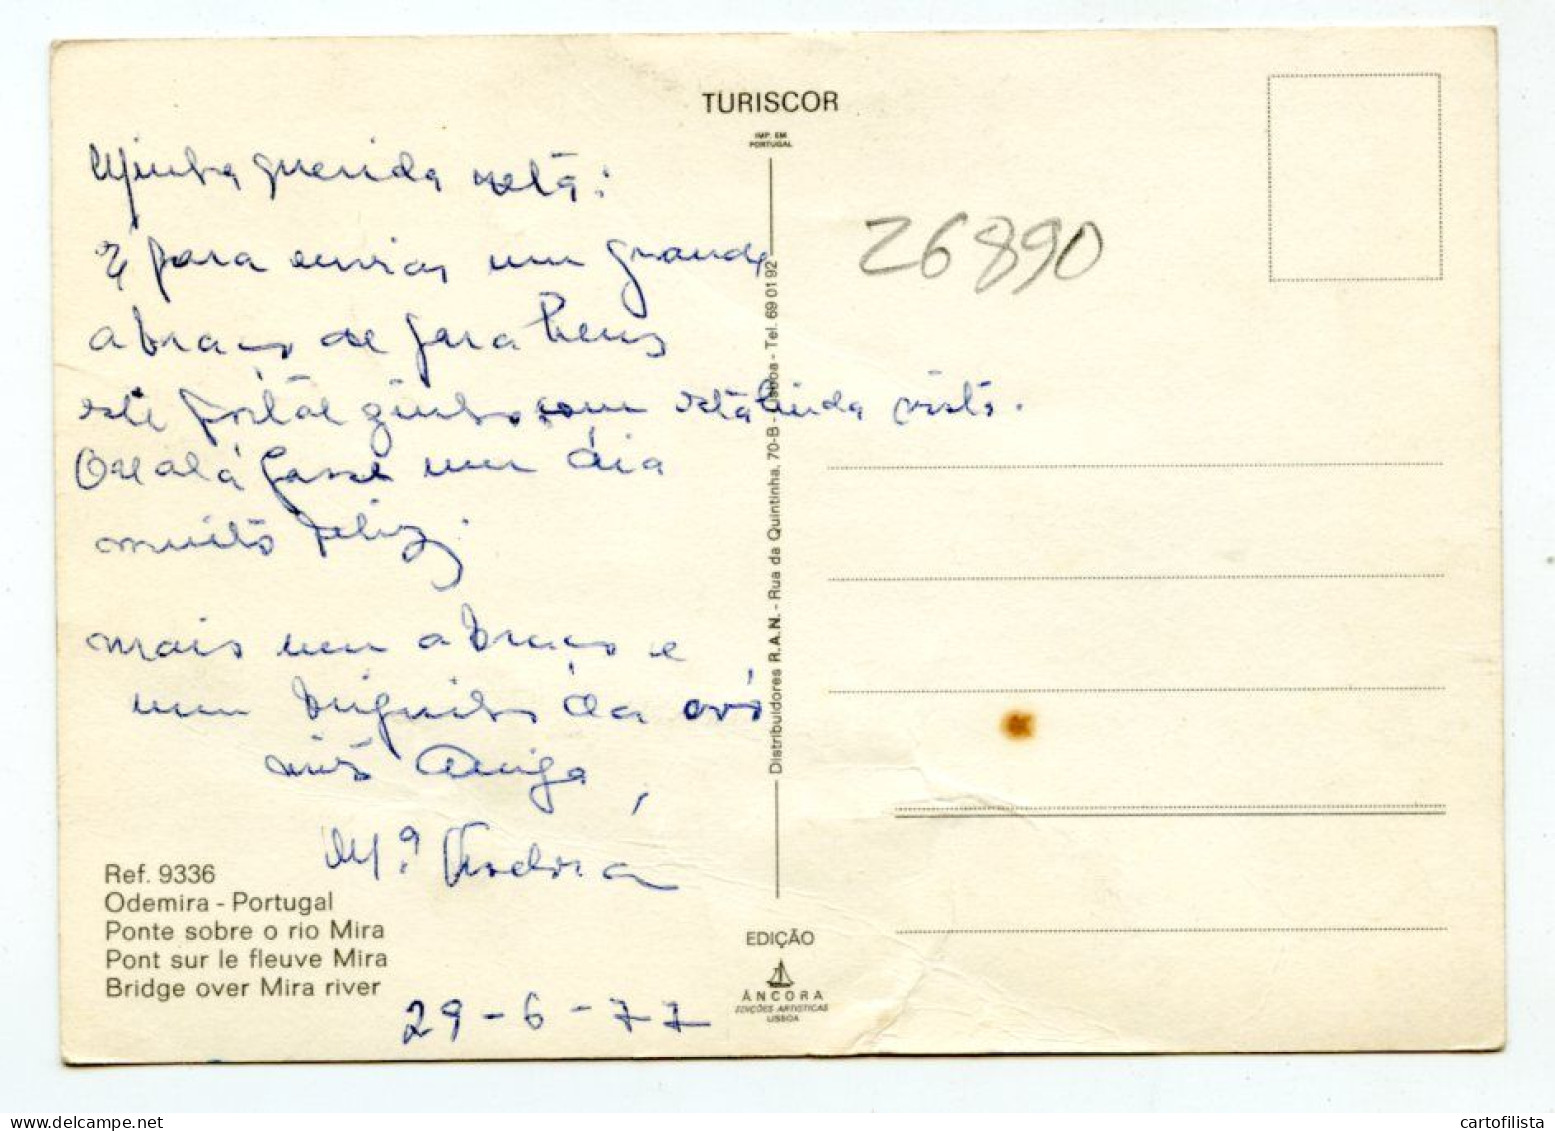 TURISCOR
IMP. EM
PORTUGAL
Minha querida neta:
É para enviar um grande
abraço de parabens
este postalzinho com esta linda vista.
Oxalá passe um dia
muito feliz.
mais um abraço e
um beijinho da avó
muito Amiga,
Mª
29-6-77
26890
Ref. 9336
Odemira - Portugal
Ponte sobre o rio Mira
Pont sur le fleuve Mira
Bridge over Mira river
Distribuidores R.A.N. - Rua da Quintinha, 70-B - Lisboa - Tel. 69 01 92
EDIÇÃO
ÂNCORA
EDIÇÕES ARTISTICAS
LISBOA
cartofilista